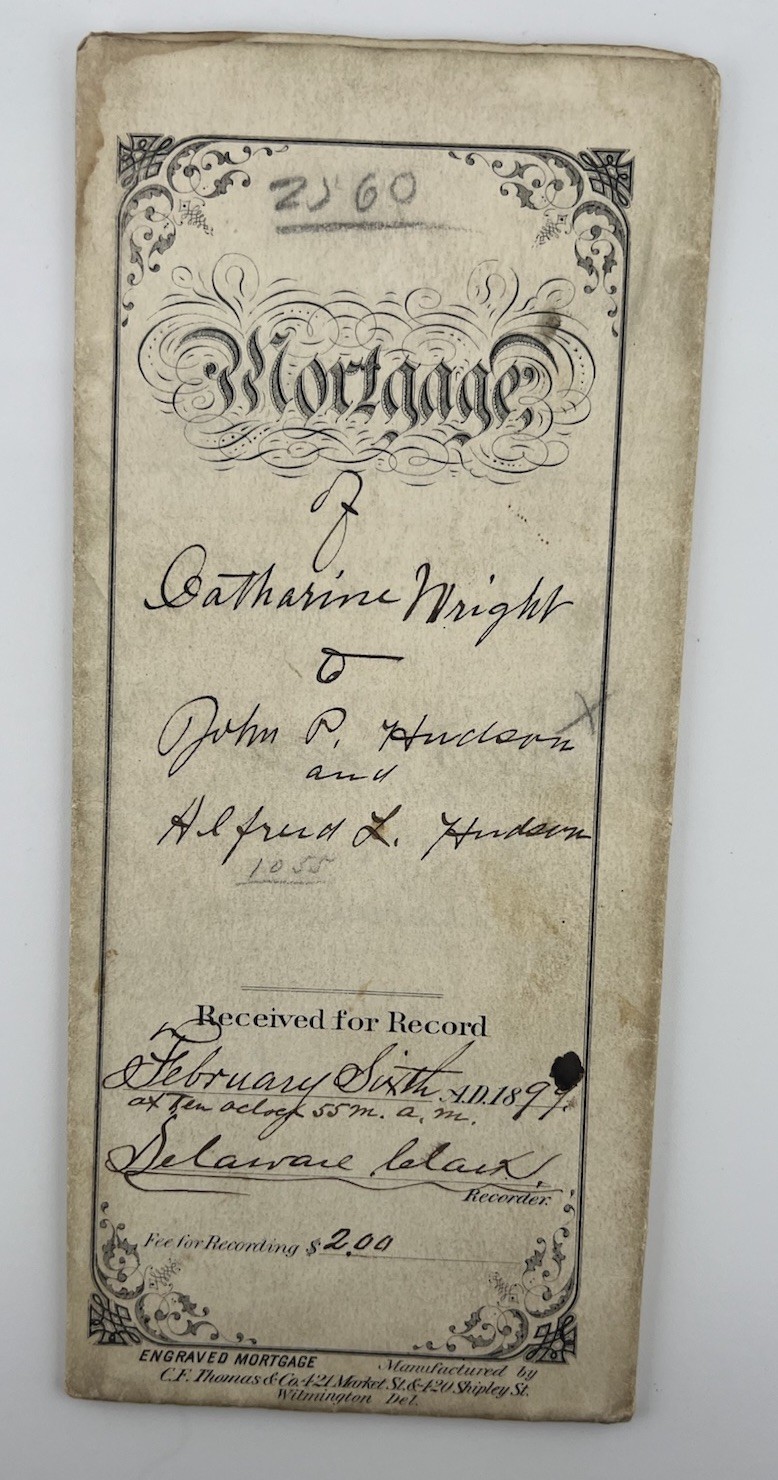 2560
Mortgage,
of
Catharine Wright
to
John P. Hudson
and
Alfred L. Hudson
1055
Received for Record
February Sixth A.D. 1899.
at Ten oclock 55 m. a. m.
Delaware Clark,
Recorder.
Fee for Recording $ 2.00
ENGRAVED MORTGAGE Manufactured by
C.F. Thomas & Co. 421 Market St. & 420 Shipley St.
Wilmington Del.